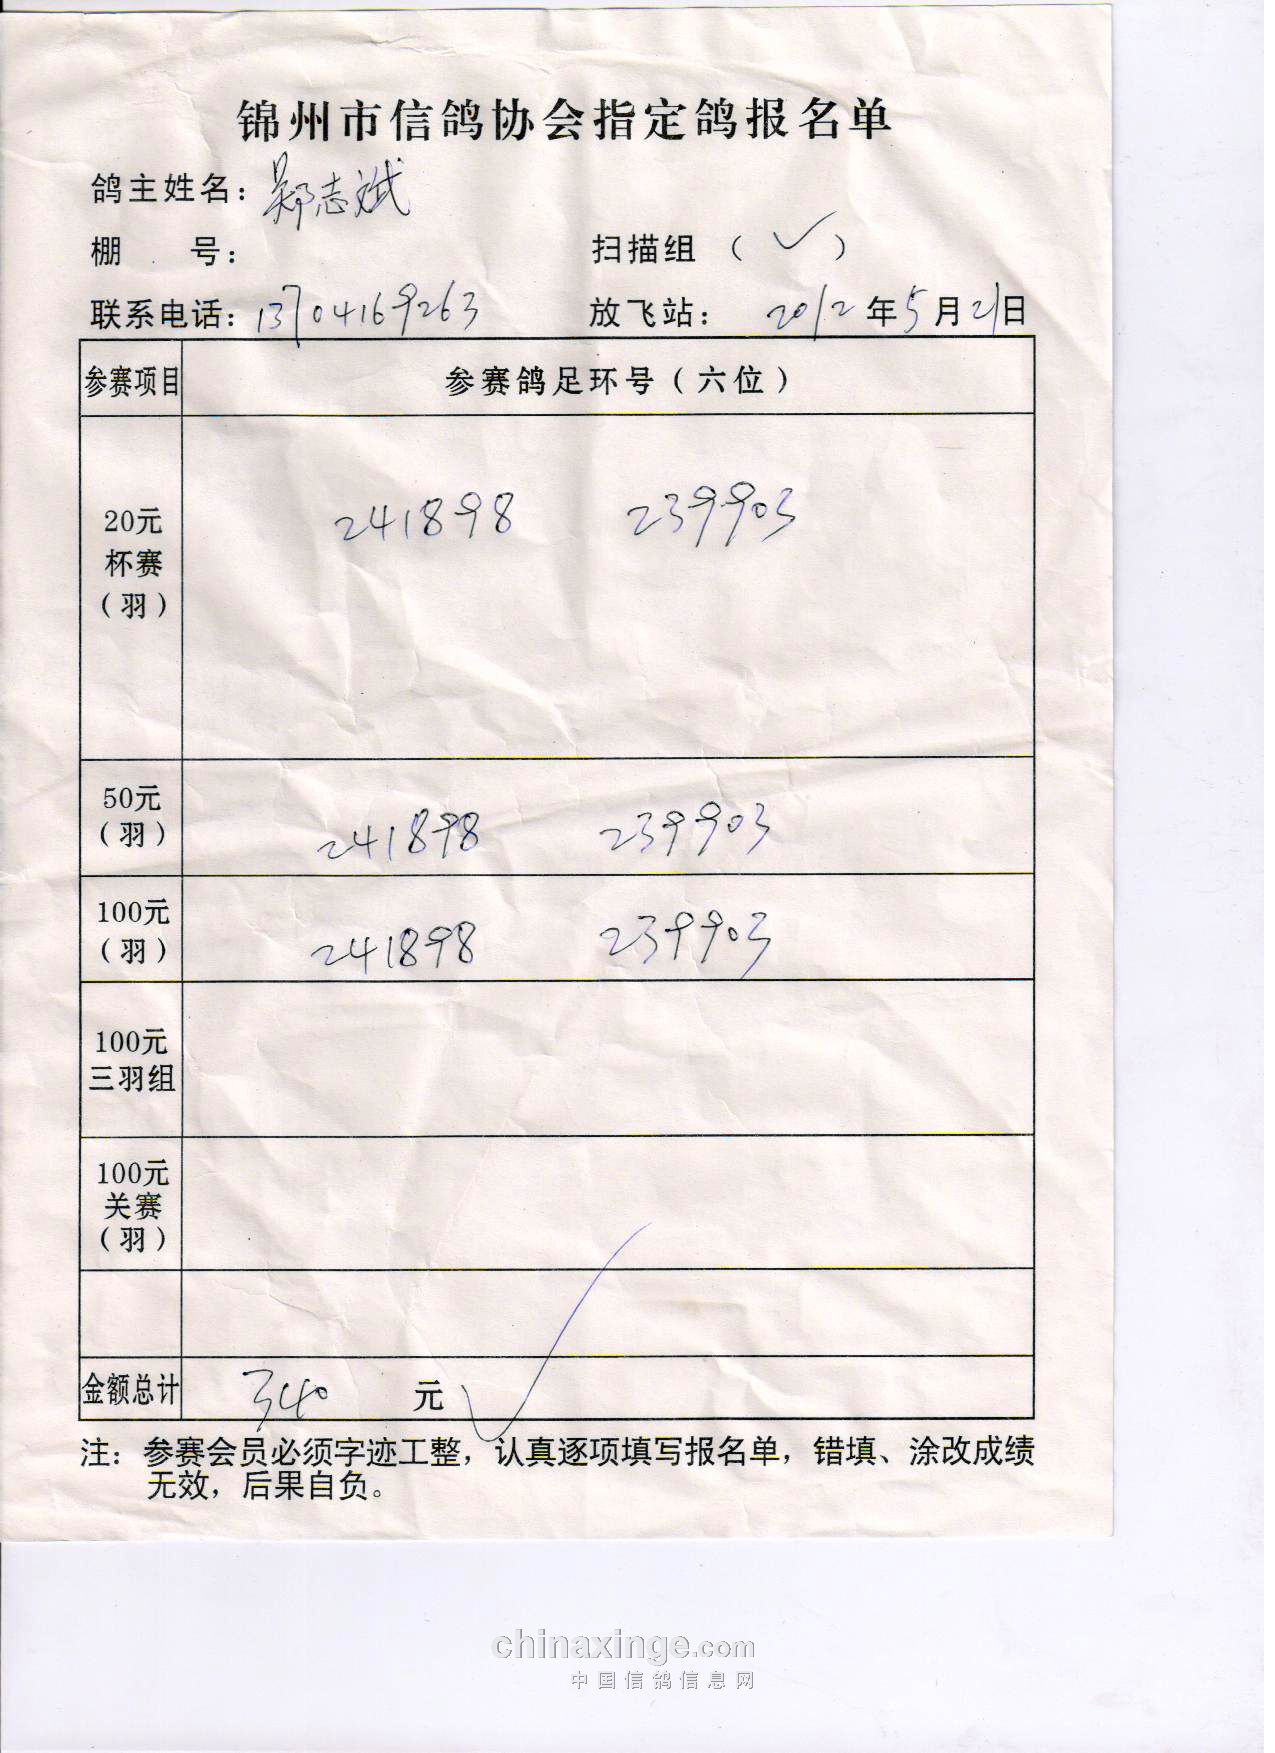 锦州市信鸽协会指定鸽报名单
鸽主姓名：郑志斌
棚 号： 扫描组（✓）
联系电话：13704169263 放飞站： 2012年5月21日
参赛项目 参赛鸽足环号（六位）
20元
杯赛
（羽）
241898 239903
50元
（羽）
241898 239903
100元
（羽）
241898 239903
100元
三羽组
100元
关赛
（羽）
金额总计 340 元
注：参赛会员必须字迹工整，认真逐项填写报名单，错填、涂改成绩
无效，后果自负。
chinaxinge.com
中国信鸽信息网